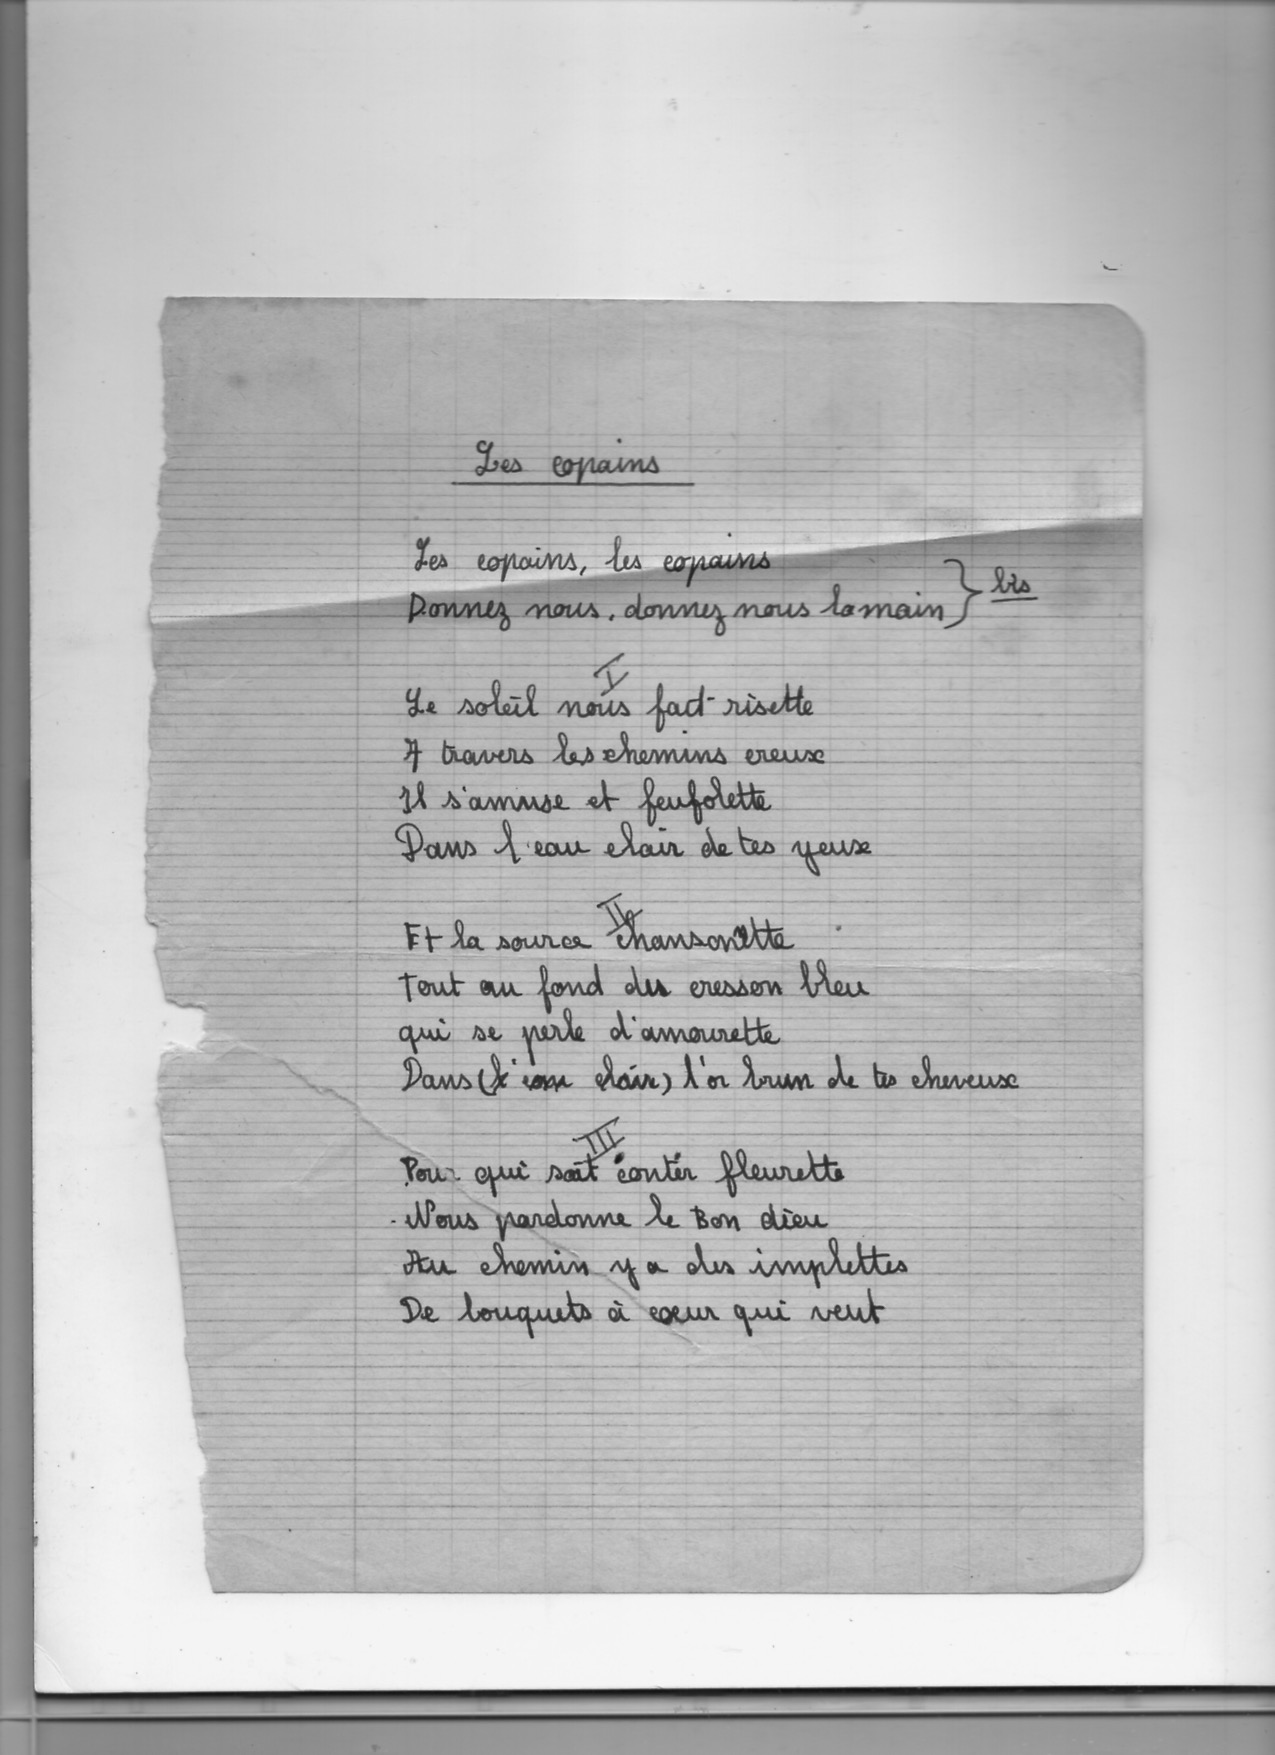 Les copains
Les copains, les copains
Donnez nous, donnez nous la main } bis
I
Le soleil nous fait risette
A travers les chemins creux
Il s'amuse et feufolette
Dans l'eau clair de tes yeux
II
Et la source chansonette
Tout au fond du cresson bleu
qui se perle d'amourette
Dans (l'eau clair) l'or brun de tes cheveux
III
Pour qui sait conter fleurette
Nous pardonne le Bon dieu
Au chemin y a des implettes
De bouquets à cœur qui veut